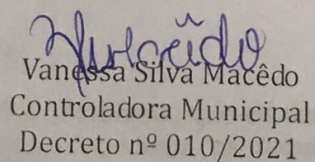 Vanessa Silva Macêdo
Controladora Municipal
Decreto nº 010/2021